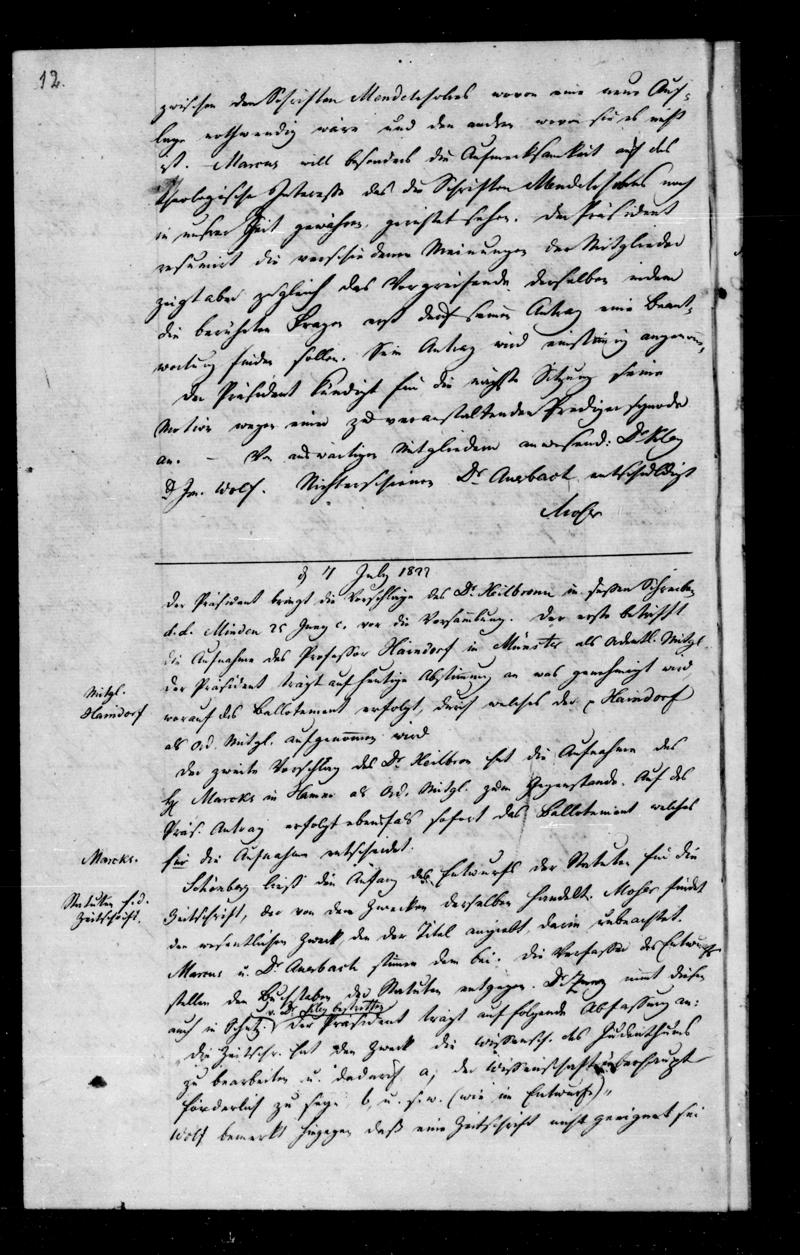 12.
zwischen den Schriften Mendelsohns wovon eine neue Auf-
lage nothwendig wäre und den andern wovon sie es nicht
ist. Marcus will besonders die Aufmerksamkeit auf das
theologische Interesse das die Schriften Mendelsohns noch
in unsrer Zeit gewähren, gerichtet sehen. Der Präsident
resumirt die verschiedenen Meinungen der Mitglieder
zeigt aber zugleich das Vorgreifende derselben indem
die berührten Fragen erst durch seinen Antrag eine Beant-
wortung finden sollen. Sein Antrag wird einstimmig angenom-
Der Präsident kündigt für die nächste Sitzung seine
Motion wegen einer zu veranstaltenden Predigersynode
an. – Von auswärtigen Mitgliedern anwesend: Dr Kley
& Im. Wolf. Nichterschienen Dr Auerbach entschuldigt
Moser
4 July 1822
Der Präsident bringt die Vorschläge des Dr. Heilbronn in dessen Schreiben
d.d. Minden 25 Juny c. vor die Versammlung. Der erste betrifft
die Aufnahme des Professor Haindorf in Münster als ordentl. Mitgl.
der Präsident trägt auf heutige Abstimmung an was genehmigt wird
Mitgl.
Haindorf
worauf das Ballotement erfolgt, durch welches der p Haindorf
als ord. Mitgl. aufgenommen wird
Der zweite Vorschlag des Dr Heilbron hat die Aufnahme des
H. Marcks in Hamm als Ord. Mitgl. zum Gegenstande. Auf des
Präs. Antrag erfolgt ebenfals sofort das Ballotement welches
Marcks.
für die Aufnahme entscheidet.
Schönberg liest den Anfang des Entwurfs der Statuten für die
Statuten f. d.
Zeitschrift.
Zeitschrift, der von den Zwecken derselben handelt. Moser findet
den wesentlichen Zweck, den der Titel angiebt, darin unbeachtet.
Marcus u. Dr. Auerbach stimmen dem bei. Die Verfasser des Entwurfs
stellen den Buchstaben der Statuten entgegen. Dr Zunz nimmt diesen
v. Dr. Kley bestritten
auch in Schutz. Der Präsident trägt auf folgende Abfassung an:
„Die Zeitschr. hat den Zweck die Wissensch. des Judenthums
zu bearbeiten u. dadurch a, der Wissenschaft überhaupt
förderlich zu seyn b, u. s. w. (wie im Entwurfe)“
Wolf bemerkt hingegen daß eine Zeitschrift nicht geeignet sei